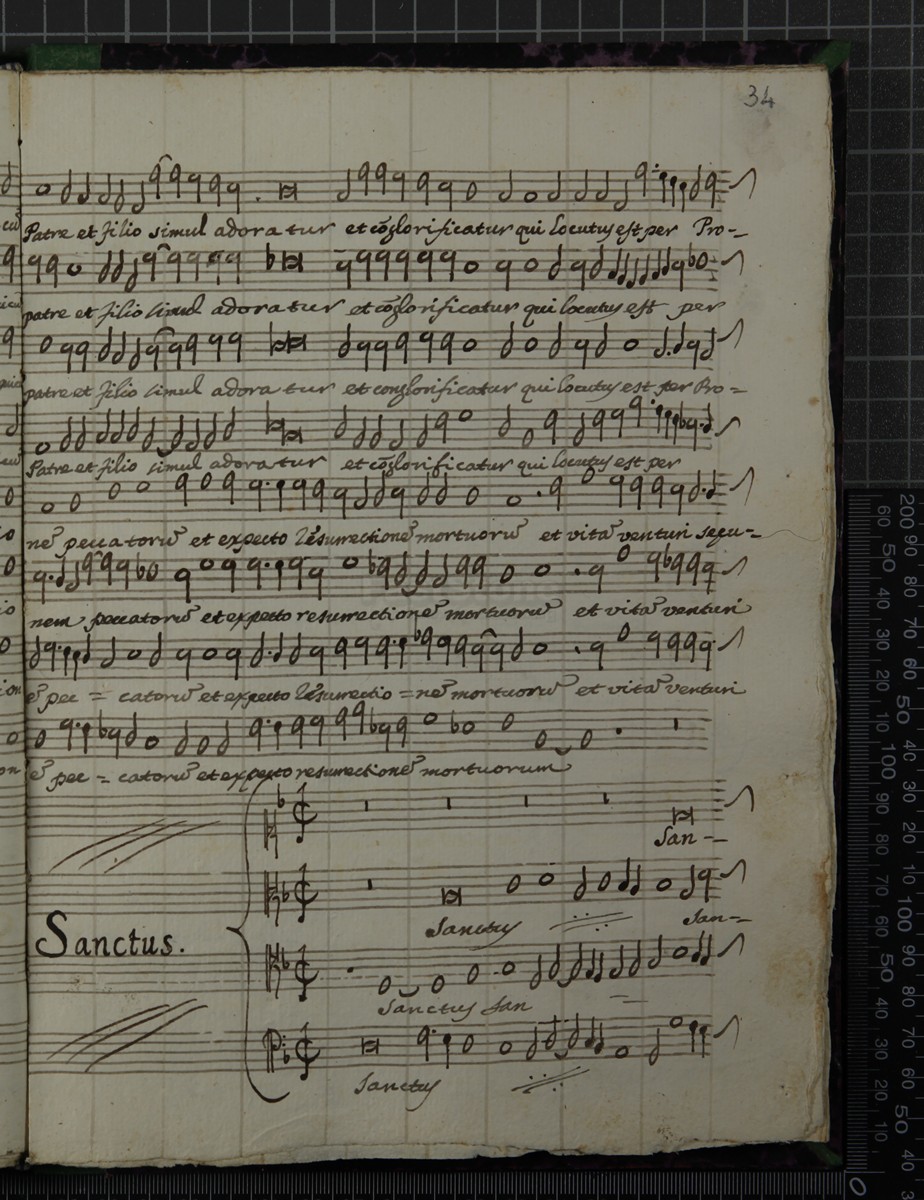 34
Patre et filio simul adora tur et cõglorificatur qui locutus est per Pro-
patre et filio simul adoratur et cõglorificatur qui locutus est per
patre et filio simul adora tur et conglorificatur qui locutus est per Pro =
Patre et filio simul adoratur et cõglorificatur qui locutus est per
nẽ peccatorũ et expecto resurrectionẽ mortuorũ et vitã venturi secu-
nem peccatorũ et expecto resurrectionẽ mortuorũ et vitã venturi
ẽ pec = catorũ et expecto resurrectio = nẽ mortuorũ et vitã venturi
ẽ pec = catorũ et expecto resurrectionẽ mortuorum
San -
Sanctus San =
Sanctus.
Sanctus San
Sanctus
200 90 80 70 60 50 40 30 20 10 100 90 80 70 60 50 40
60 50 40 30 20 10
0